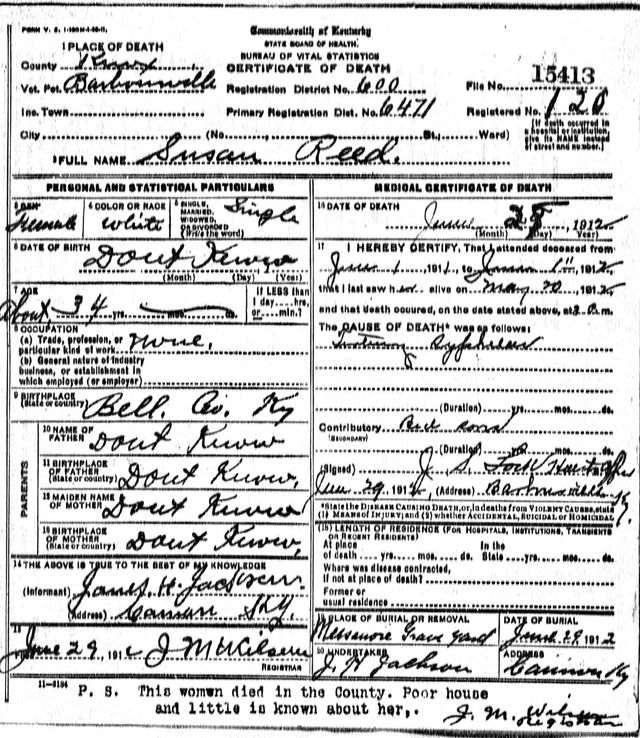 FORM V. S. 1-
Commonwealth of Kentucky
STATE BOARD OF HEALTH.
BUREAU OF VITAL STATISTICS
CERTIFICATE OF DEATH
1 PLACE OF DEATH
County Knox
Vot. Pct. Barbourville
Registration District No. 600
File No. 15413
Inc. Town
Primary Registration Dist. No. 6471
Registered No. 120
City (No. St., Ward)
[If death occurred in a hospital or institution, give its NAME instead of street and number.]
2 FULL NAME Susan Reed.
PERSONAL AND STATISTICAL PARTICULARS
3 SEX Female
4 COLOR OR RACE White
5 SINGLE, MARRIED, WIDOWED, OR DIVORCED (Write the word) Single
6 DATE OF BIRTH Dont Know
(Month) (Day) (Year)
7 AGE About 34 yrs. mos. ds.
If LESS than 1 day...hrs. or...min.?
8 OCCUPATION
(a) Trade, profession, or particular kind of work None.
(b) General nature of industry business, or establishment in which employed (or employer)
9 BIRTHPLACE (State or country) Bell. Co. Ky
PARENTS
10 NAME OF FATHER Dont Know
11 BIRTHPLACE OF FATHER (State or country) Dont Know.
12 MAIDEN NAME OF MOTHER Dont Know
13 BIRTHPLACE OF MOTHER (State or country) Dont Know.
14 THE ABOVE IS TRUE TO THE BEST OF MY KNOWLEDGE
(Informant) James H. Jackson.
(Address) Cannon Ky.
15
Filed June 29, 1912 J M Wilson
REGISTRAR
11-3184
MEDICAL CERTIFICATE OF DEATH
16 DATE OF DEATH
June 28, 1912
(Month) (Day) (Year)
17 I HEREBY CERTIFY, That I attended deceased from
June 1, 191 , to June 1", 1912
that I last saw her alive on May 20, 1912
and that death occured, on the date stated above, at m.
The CAUSE OF DEATH* was as follows:
(Duration) yrs. mos. ds.
Contributory Bed sores
(SECONDARY)
(Duration) yrs. mos. ds.
(Signed) J. S.
June 29, 1912 (Address) Barbourville Ky.
*State the DISEASE CAUSING DEATH, or, in deaths from VIOLENT CAUSES, state (1) MEANS OF INJURY; and (2) whether ACCIDENTAL, SUICIDAL or HOMICIDAL
(18) LENGTH OF RESIDENCE (FOR HOSPITALS, INSTITUTIONS, TRANSIENTS OR RECENT RESIDENTS)
At place of death yrs. mos. ds. In the State yrs. mos. ds.
Where was disease contracted, If not at place of death?
Former or usual residence
19 PLACE OF BURIAL OR REMOVAL
Grave yard
DATE OF BURIAL
June 29, 1912
20 UNDERTAKER
J. H Jackson
ADDRESS
Cannon Ky
P. S. This women died in the County. Poor house
and little is known about her,.
J. M. Wilson
Registrar